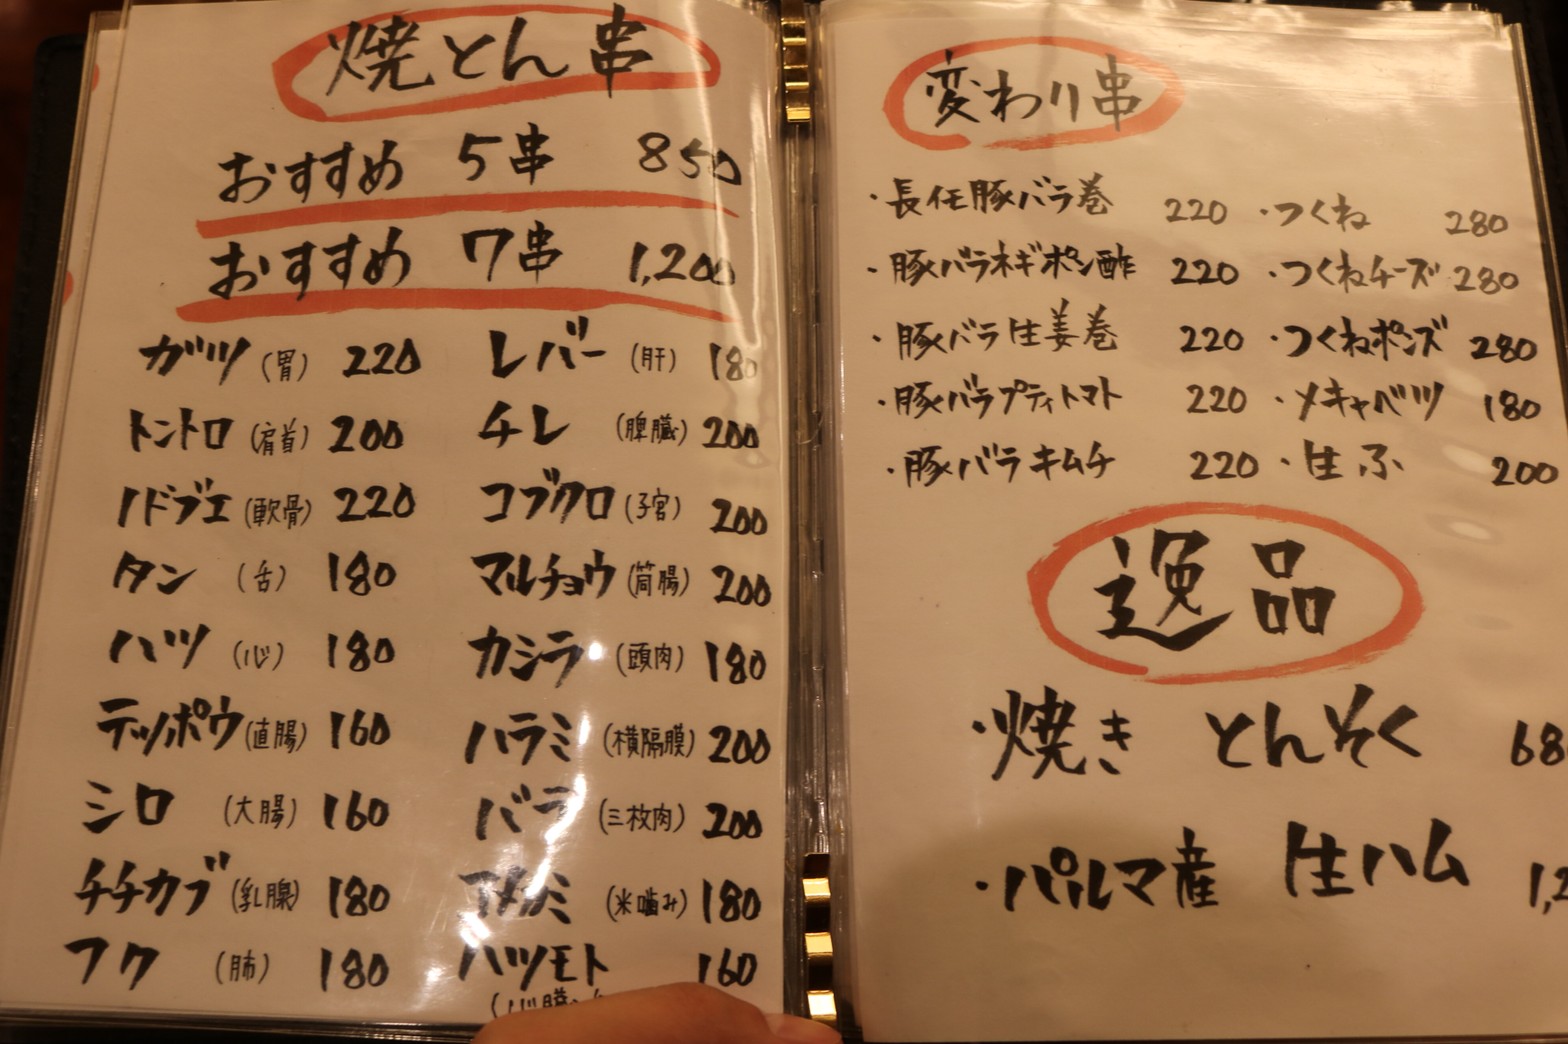 焼とん串
おすすめ 5串 850
おすすめ 7串 1,200
ガツ (胃) 220
トントロ (肩首) 200
ノドブエ (軟骨) 220
タン (舌) 180
ハツ (心) 180
テッポウ (直腸) 160
シロ (大腸) 160
チチカブ (乳腺) 180
フク (肺) 180
レバー (肝) 180
チレ (脾臓) 200
コブクロ (子宮) 200
マルチョウ (筒腸) 200
カシラ (頭肉) 180
ハラミ (横隔膜) 200
バラ (三枚肉) 200
コメカミ (米噛み) 180
ハツモト 160
変わり串
・長任豚バラ巻 220
・豚バラネギポン酢 220
・豚バラ生姜巻 220
・豚バラプティトマト 220
・豚バラキムチ 220
・つくね 280
・つくねチーズ 280
・つくねポンズ 280
・メキャベツ 180
・生ふ 200
逸品
・焼き とんそく 68
・パルマ産 生ハム 1,2